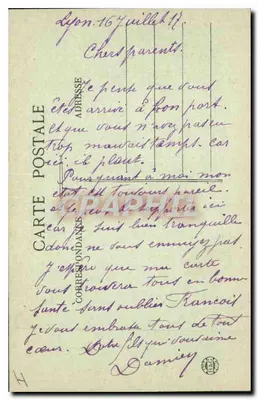 Lyon. 16 Juillet 17.
Chers parents.
Je pense que vous
êtes arrivé à bon port.
et que vous n'avez pas eu
trop mauvais temps. car
ici, il pleut.
Pour quant à moi mon
état est toujours pareil.
ici
car je suis bien tranquille
donc ne vous ennuyez pas.
J'espère que ma carte
vous trouvera tous en bonne
santé sans oublier François
Je vous embrasse tous de tout
cœur. Votre fils qui vous aime
Damien
CARTE POSTALE
CORRESPONDANCE
ADRESSE